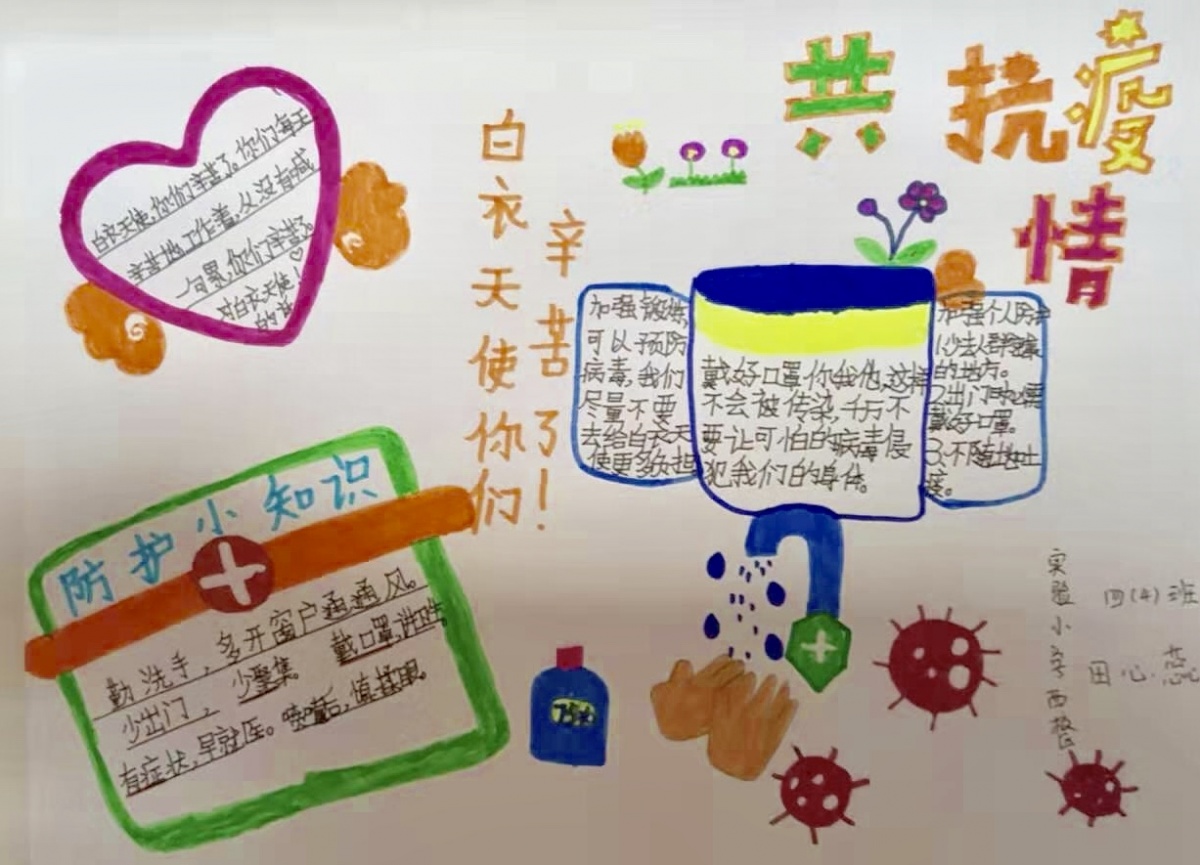 共抗疫
情
白衣天使你们
辛苦了!
白衣天使,你们辛苦了。你们每天
辛苦地工作着,从没有喊
一句累,你们辛苦了。
对白衣天使
的
加强锻炼,
可以预防
病毒,我们
尽量不要
去给白衣天
使更多负担
戴好口罩你我他,这样
不会被传染,千万不
要让可怕的病毒侵
犯我们的身体。
加强个人防护
1少去人群密集
的地方。
2出门时必需
戴好口罩。
3不随地吐
痰。
防护小知识
勤洗手,多开窗户通通风。
少出门,少聚集。戴口罩,讲卫生。
有症状,早就医。喷嚏后,慎揉眼。
75%
实验小学西校
四(4)班
田心蕊